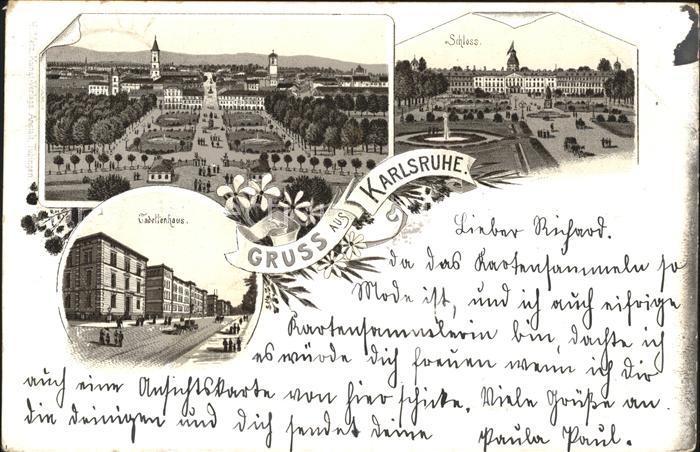 Schloss.
Cadettenhaus.
GRUSS AUS KARLSRUHE.
Lieber Richard.
da das Kartensammeln so
Mode ist, und ich auch eifrige
Kartensammlerin bin, dachte ich
es würde dich freuen wenn ich dir
auch eine Ansichtskarte von hier schicke. Viele Grüße an
die deinigen und dich sendet deine Paula Paul.